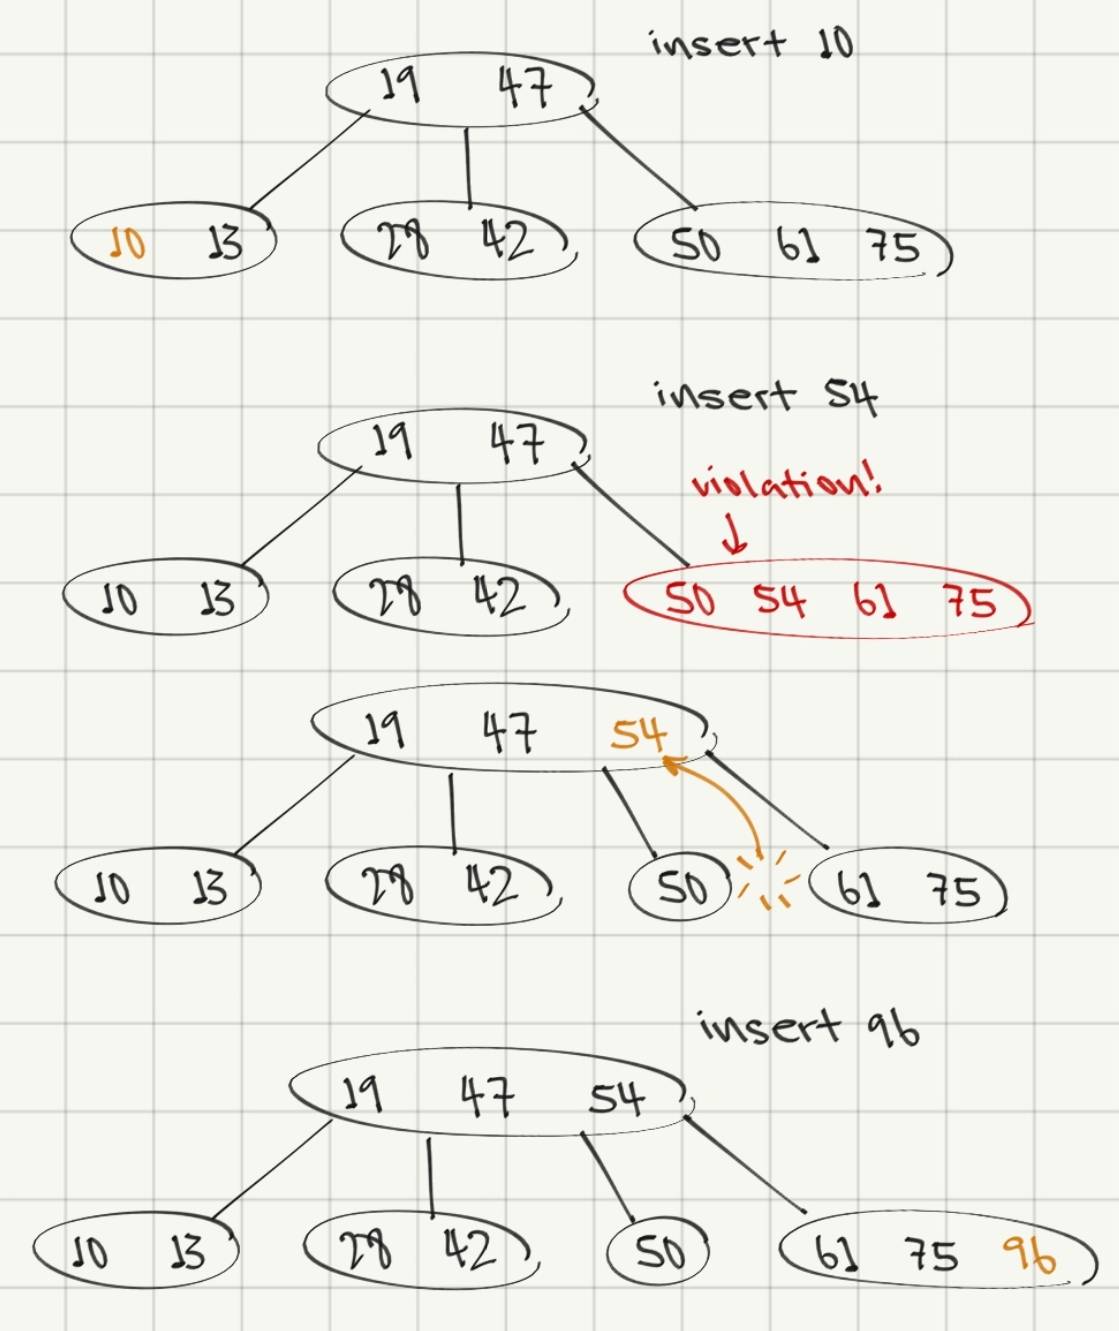 insert 10
19 47
10 13 28 42 50 61 75
insert 54
19 47
violation!
10 13 28 42 50 54 61 75
19 47 54
10 13 28 42 50 61 75
insert 96
19 47 54
10 13 28 42 50 61 75 96